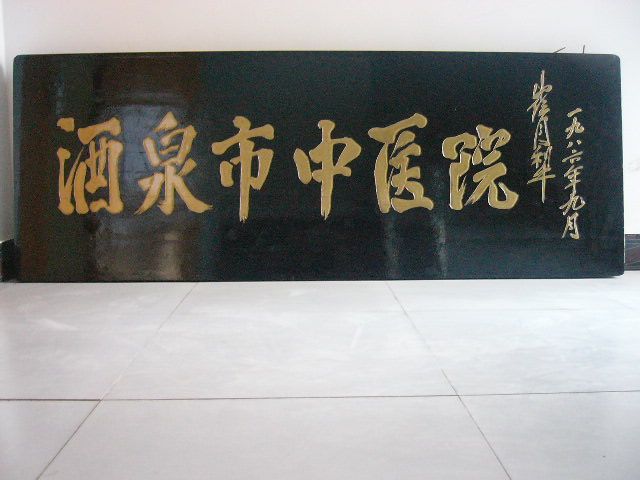 酒泉市中医院
崔月犁
一九八六年九月